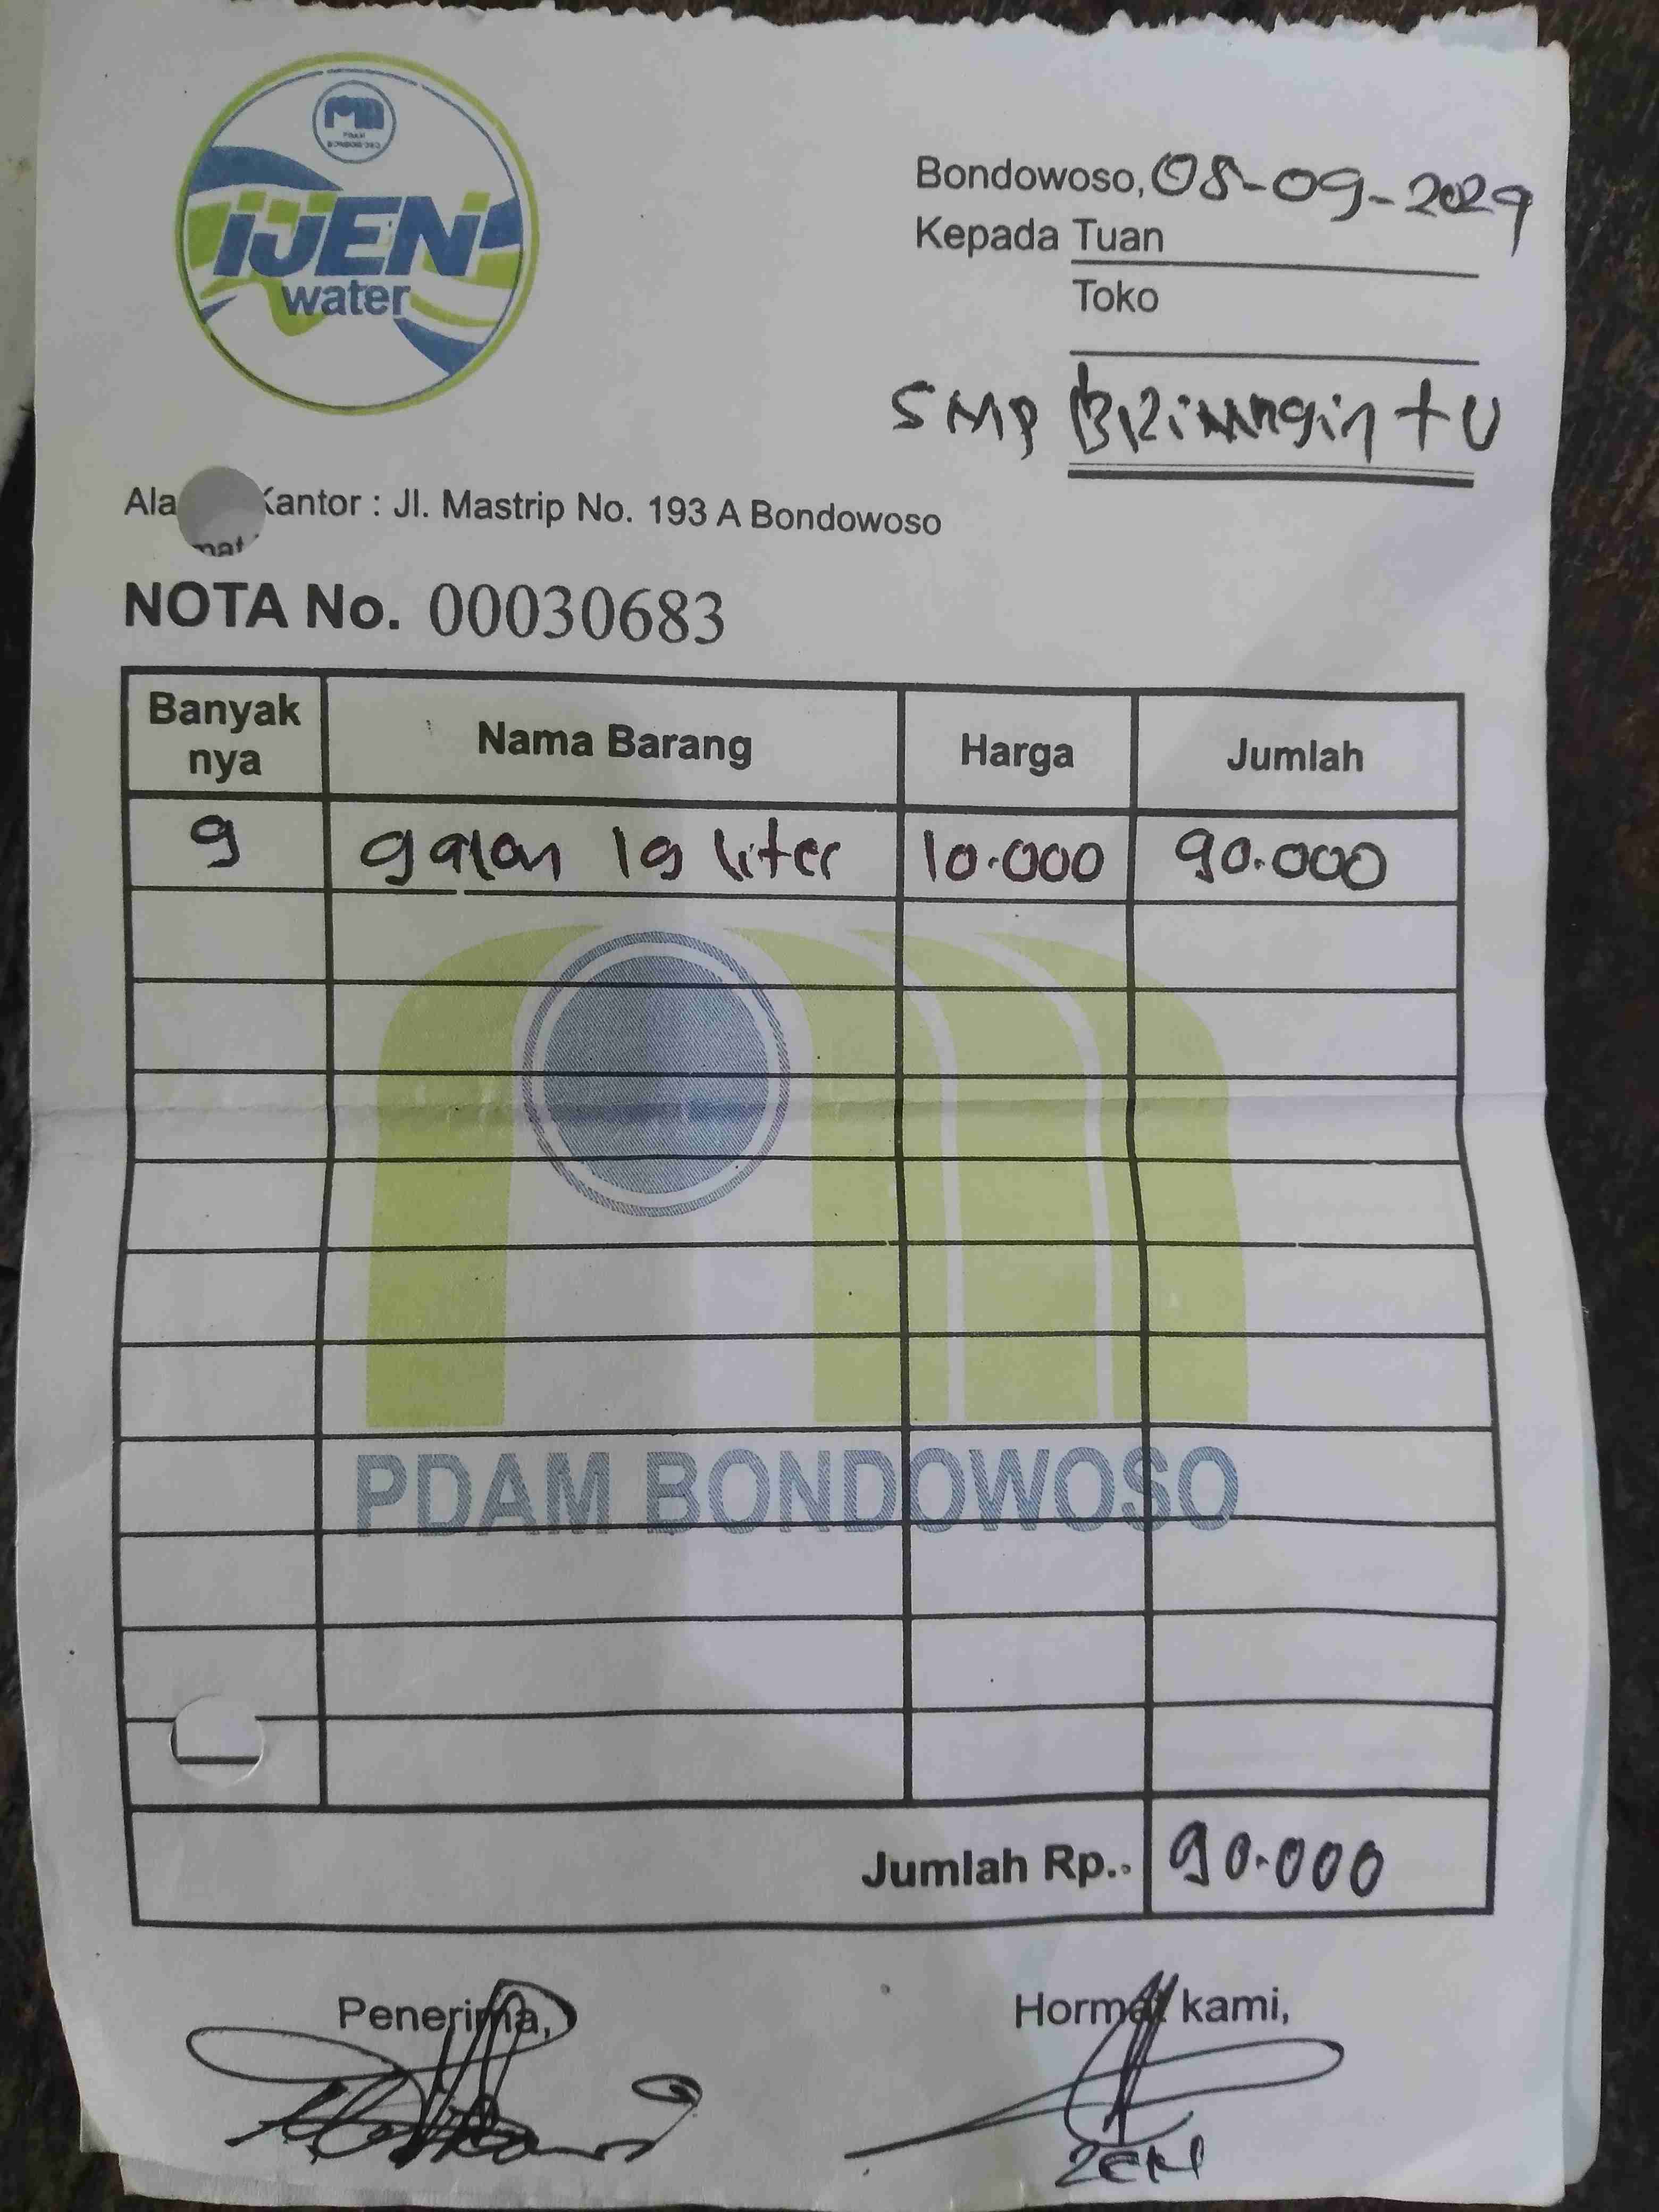 PDAM
BONDOWOSO
IJEN
water
Bondowoso, 08-09-2029
Kepada Tuan
Toko
SMP
TU
Ala Kantor : Jl. Mastrip No. 193 A Bondowoso
mat
NOTA No. 00030683
Banyak nya Nama Barang Harga Jumlah
9 galon 19 liter 10.000 90.000
PDAM BONDOWOSO
Jumlah Rp.. 90.000
Penerima, Hormat kami,
ZEN